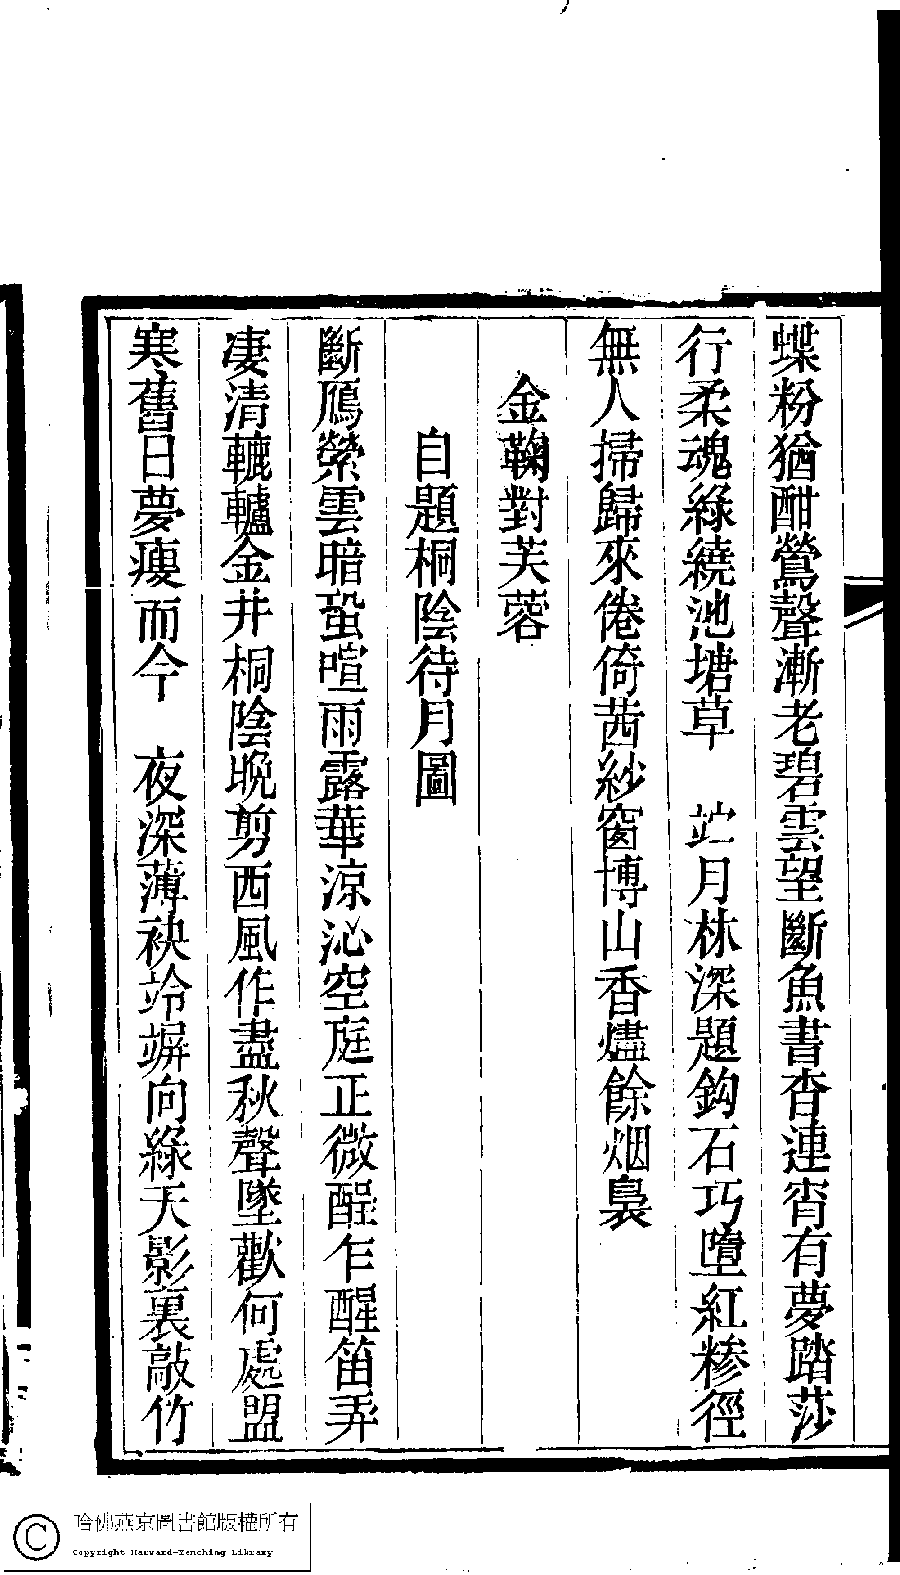 蝶粉猶酣鶯聲漸老碧雲望斷魚書杳連宵有夢踏莎
行柔魂綠繞池塘草　竚月林深題鈎石巧墮紅糝徑
無人掃歸來倦倚茜紗窗博山香燼餘烟裊
金鞠對芙蓉
自題桐陰待月圖
斷鴈縈雲暗蛩喧雨露華涼沁空庭正微酲乍醒笛弄
凄清轆轤金井桐陰晚剪西風作盡秋聲墜歡何處盟
寒舊日夢瘦而今　夜深薄袂竛竮向綠天影裏敲竹
哈佛燕京圖書館版權所有
Copyright Harvard-Yenching Library